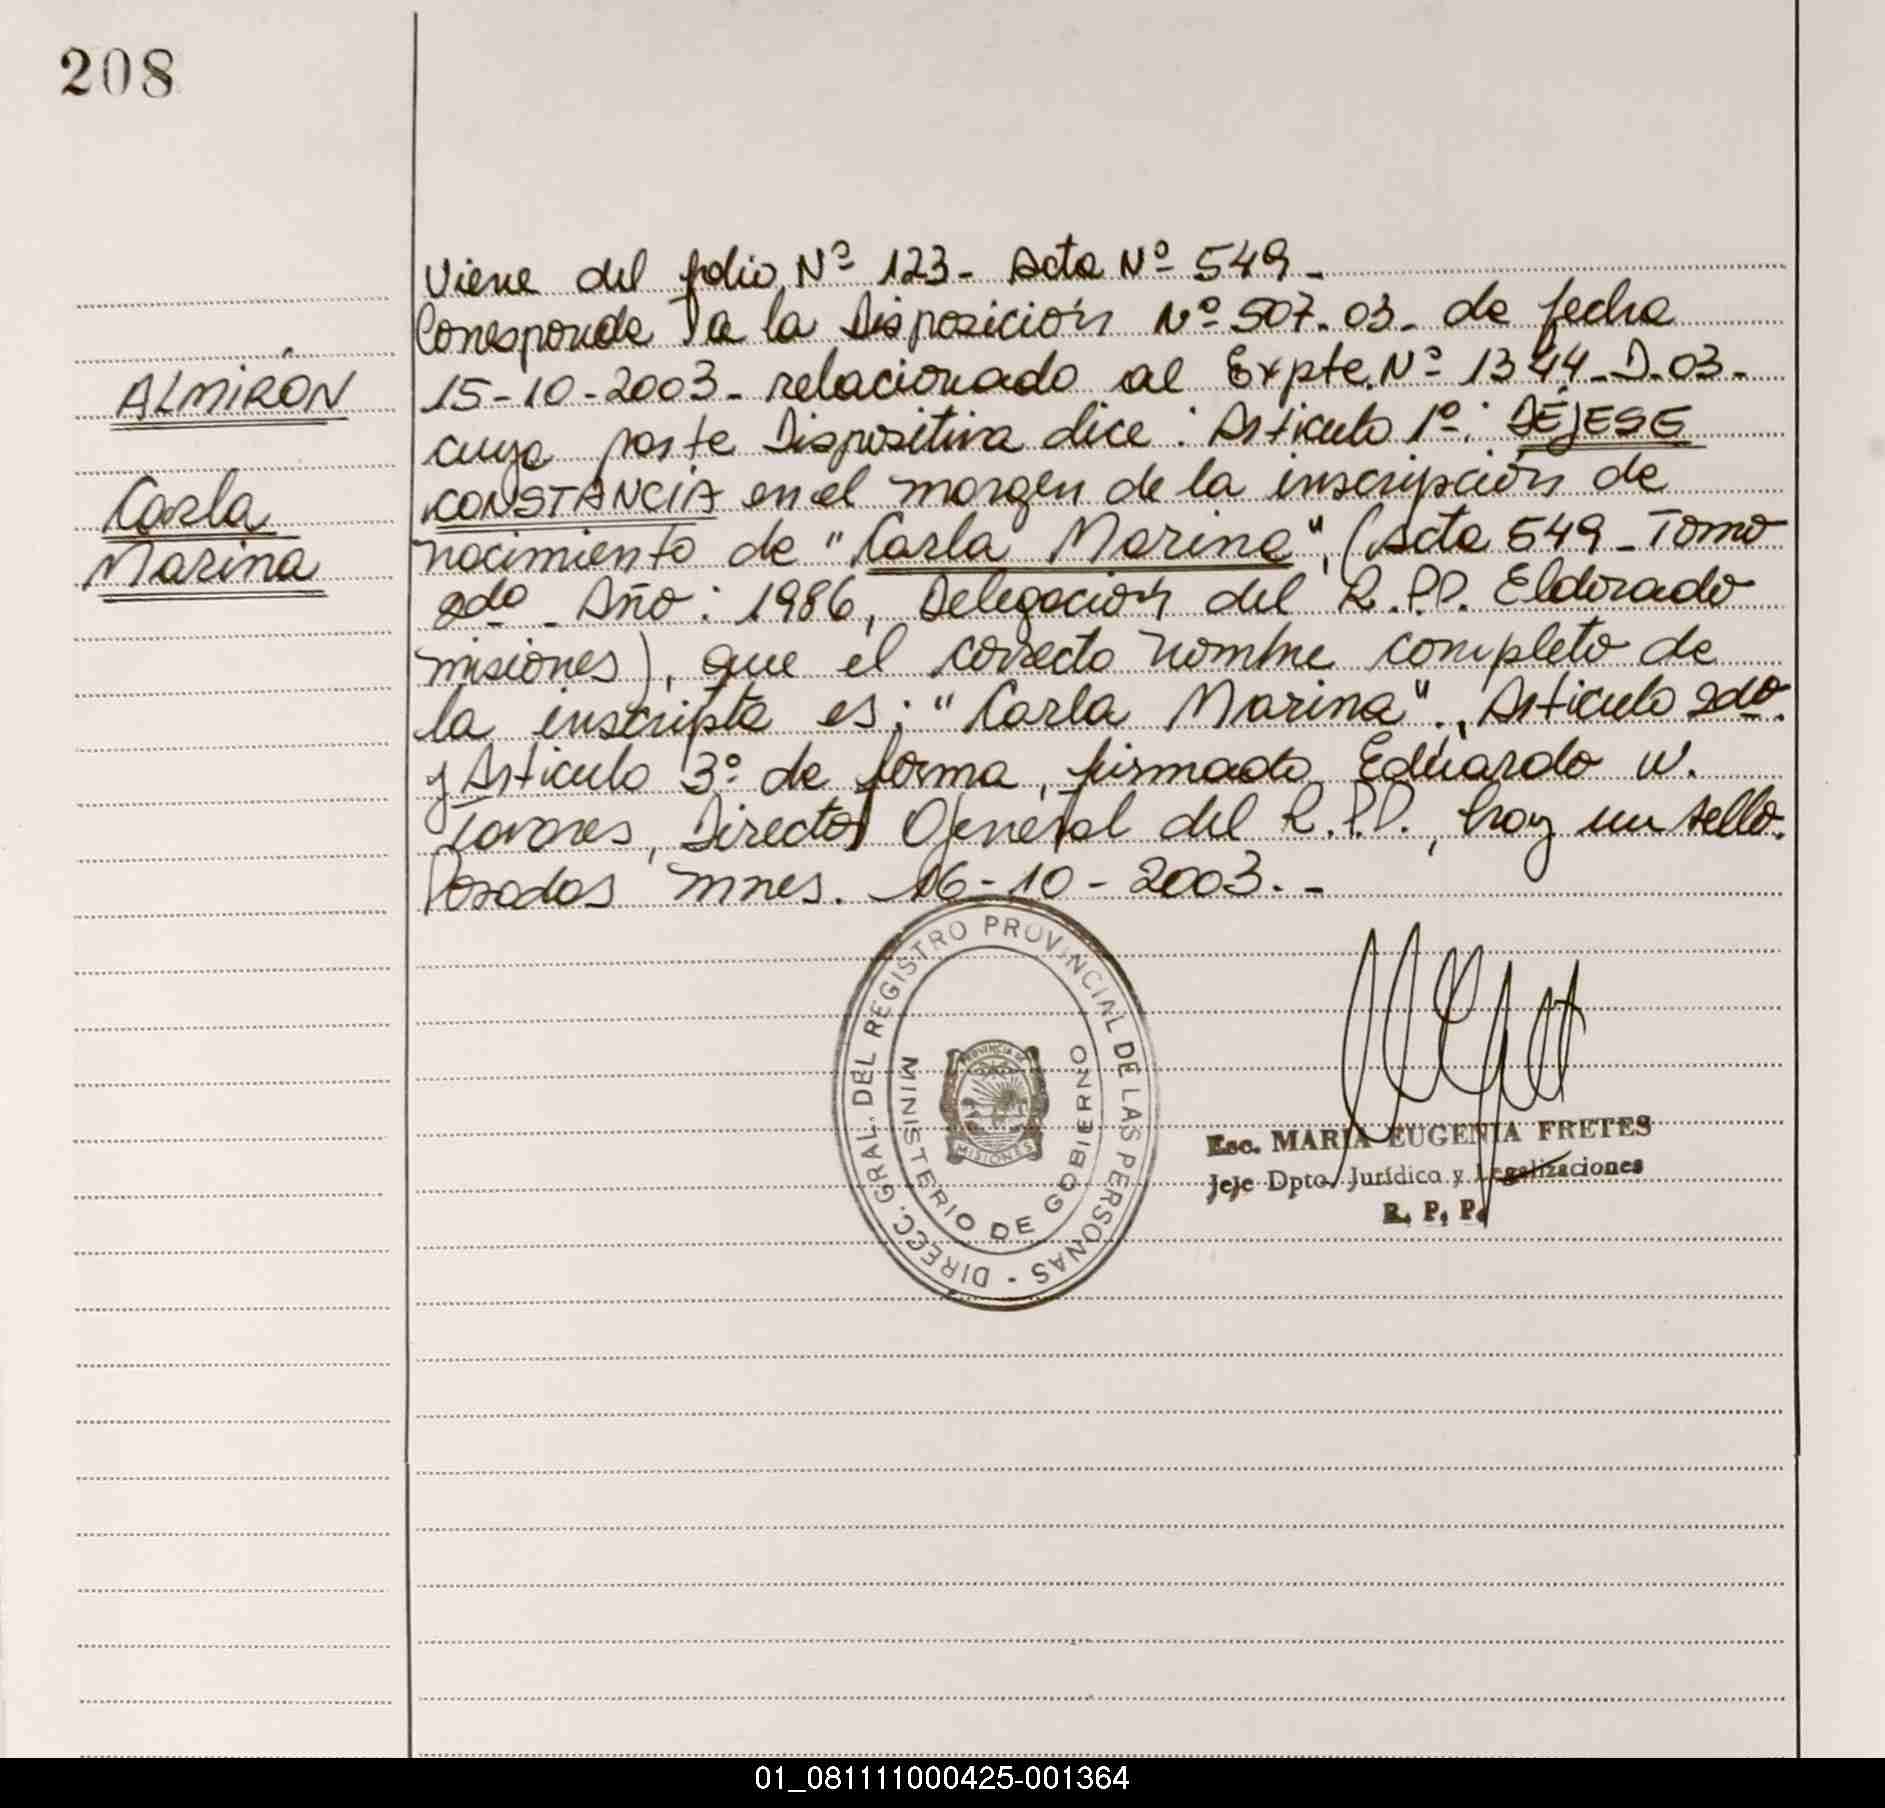 208
Viene del folio Nº 123 - Acta Nº 549 -
Corresponde a la Disposición Nº 507-03- de fecha
15-10-2003- relacionado al Expte. Nº 1344-D-03-
ALMIRÓN
cuya parte Dispositiva dice: Articulo 1º: DÉJESE
CONSTANCIA en el margen de la inscripción de
Carla
nacimiento de "Carla Marina", (Acta 549 - Tomo
Marina
2do - Año: 1986, Delegación del R.P.P. Eldorado
misiones), que el correcto nombre completo de
la inscripta es: "Carla Marina". Articulo 2do.
y Articulo 3º de forma, firmado Eduardo W.
Tavares, Director General del R.P.P., hay un sello.
Posadas Mnes. 16-10-2003.-
DIRECC. GRAL. DEL REGISTRO PROVINCIAL DE LAS PERSONAS -
MINISTERIO DE GOBIERNO
PROVINCIA DE
MISIONES
Esc. MARIA EUGENIA FRETES
Jefe Dpto. Jurídico y Legalizaciones
R. P. P.
01_081111000425-001364